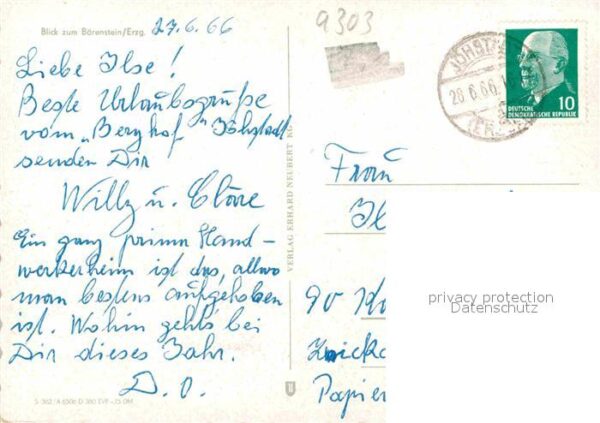 Blick zum Bärenstein/Erzg.
27.6.66
Liebe Ilse!
Beste Urlaubsgrüße
vom „Berghof" Jöhstadt
senden Dir
Willy u. Cläre
Ein ganz prima Hand-
werkerheim ist das, allwo
man bestens aufgehoben
ist. Wohin gehts bei
Dir dieses Jahr.
D. O.
S 362/A 6506 D 380 EVP -,25 DM
VERLAG ERHARD NEUBERT KG
9303
JÖHSTADT
28.6.66
(ERZGEB)
DEUTSCHE
DEMOKRATISCHE REPUBLIK
10
Frau
Il
90
Papier
privacy protection
Datenschutz